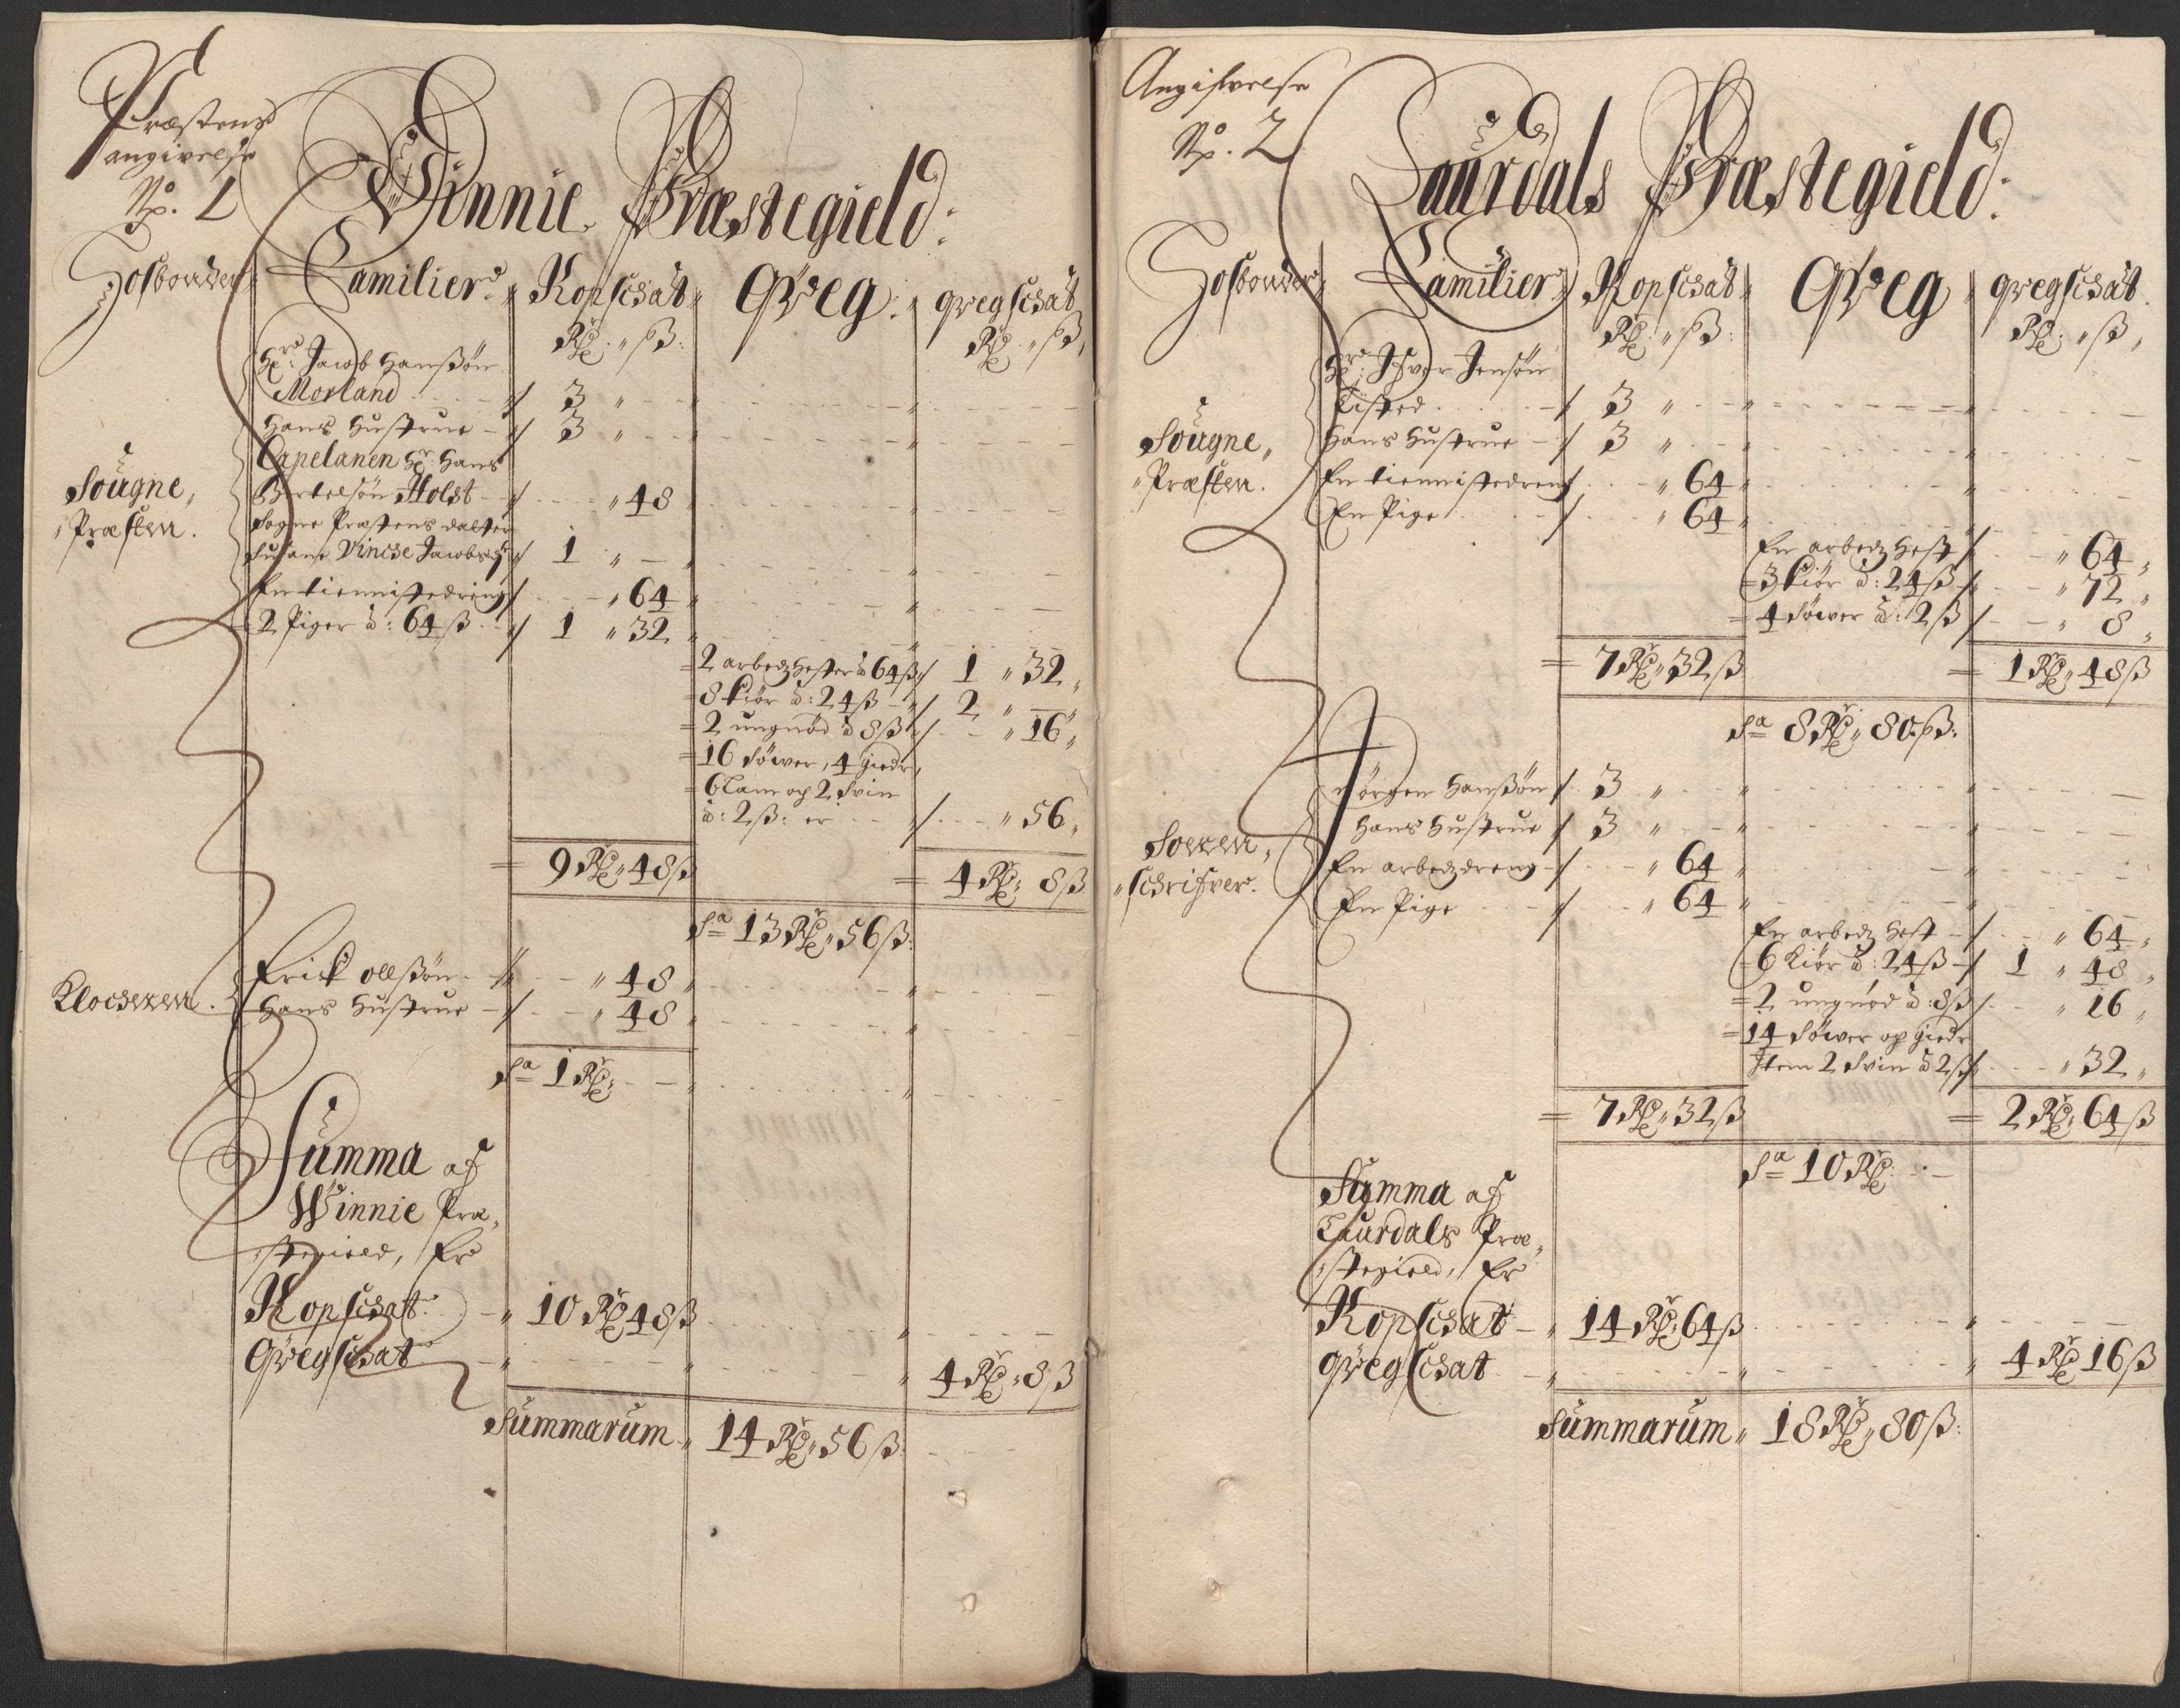 Præstens
angivelse
No. 1
Winnie Præstegield:
Hosbonder Familier Kopschat Qveg. qvegschat
Rdr. ß: Rdr. ß,
Hr: Jacob Hanßøn
Morland 3
Hans Hustrue 3
Capelanen Hr: Hans
Bertelsøn Holst 48
Sougne,
Præsten.
Sogne Præstens datter
Susane Vincse 1
En tiennistedreng 64
2 Piger à: 64 ß 1 32
2 arbedz hester à 64 ß 1 32
8 kiør à: 24 ß 2
2 ungnød à 8 ß 16
16 Søwer, 4 gieder,
6 Lam og 2 Svin
à: 2 ß: er 56
9 Rdr 48 ß 4 Rdr 8 ß
Sa 13 Rdr 56 ß:
Klockeren. Erick ollßøn 48
Hans Hustrue 48
Sa 1 Rdr
Summa af
Winnie Præ,
stegield, Er
Kopschat 10 Rdr 48 ß
Qvegschat 4 Rdr 8 ß
Summarum 14 Rdr 56 ß:
Angifvelse
No. 2
Laurdals Præstegield:
Hosbonder Familier Kopschat Qveg qvegschat.
Rdr: ß: Rdr: ß,
Hr: Ifver Jensøn
Tisted 3
Sougne,
Præsten.
Hans Hustrue 3
En tiennistedreng 64
En Pige 64
En arbedz Hest 64
3 kiør à: 24 ß 72
4 Søwer à: 2 ß 8
7 Rdr 32 ß 1 Rdr 48 ß
Sa 8 Rdr 80 ß:
Jørgen Hanßøn 3
Hans Hustrue 3
Soren,
schrifver.
En arbedzdreng 64
En Pige 64
En arbedz Hest 64
6 Kiør à: 24 ß 1 48
2 ungnød à: 8 ß 16
14 Søwer og gieder
Item 2 Svin à 2 ß 32
7 Rdr 32 ß 2 Rdr 64 ß
Sa 10 Rdr
Summa af
Laurdals Præ,
stegield, Er
Kopschat 14 Rdr 64 ß
qvegschat 4 Rdr 16 ß
Summarum 18 Rdr 80 ß: